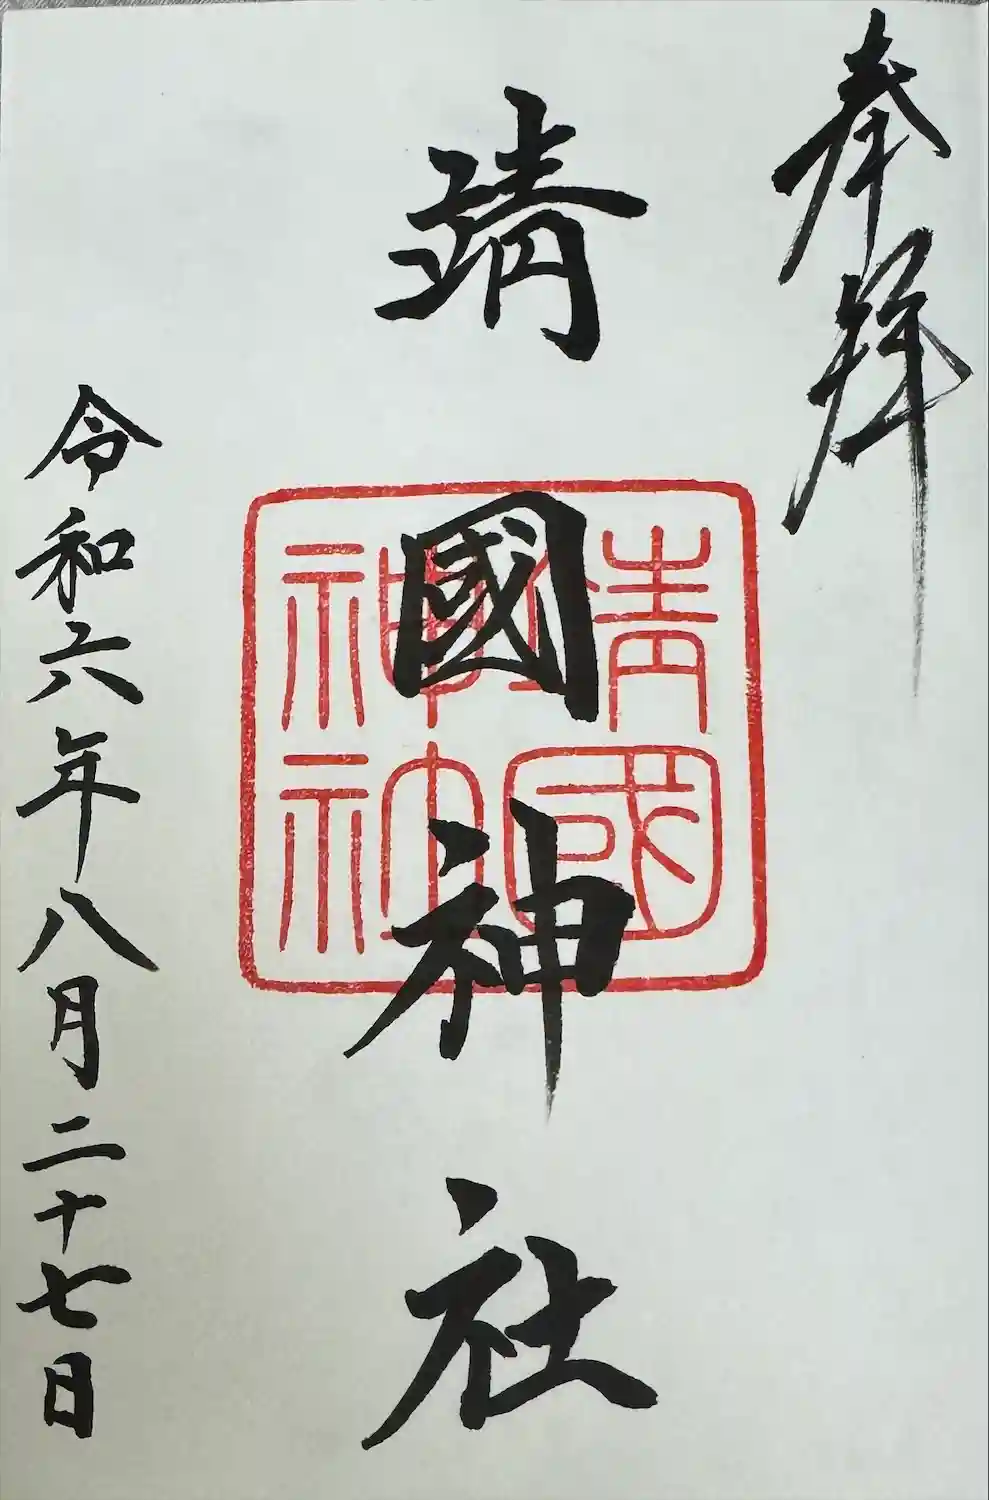 奉拝
靖國神社
靖國
神社
令和六年八月二十七日